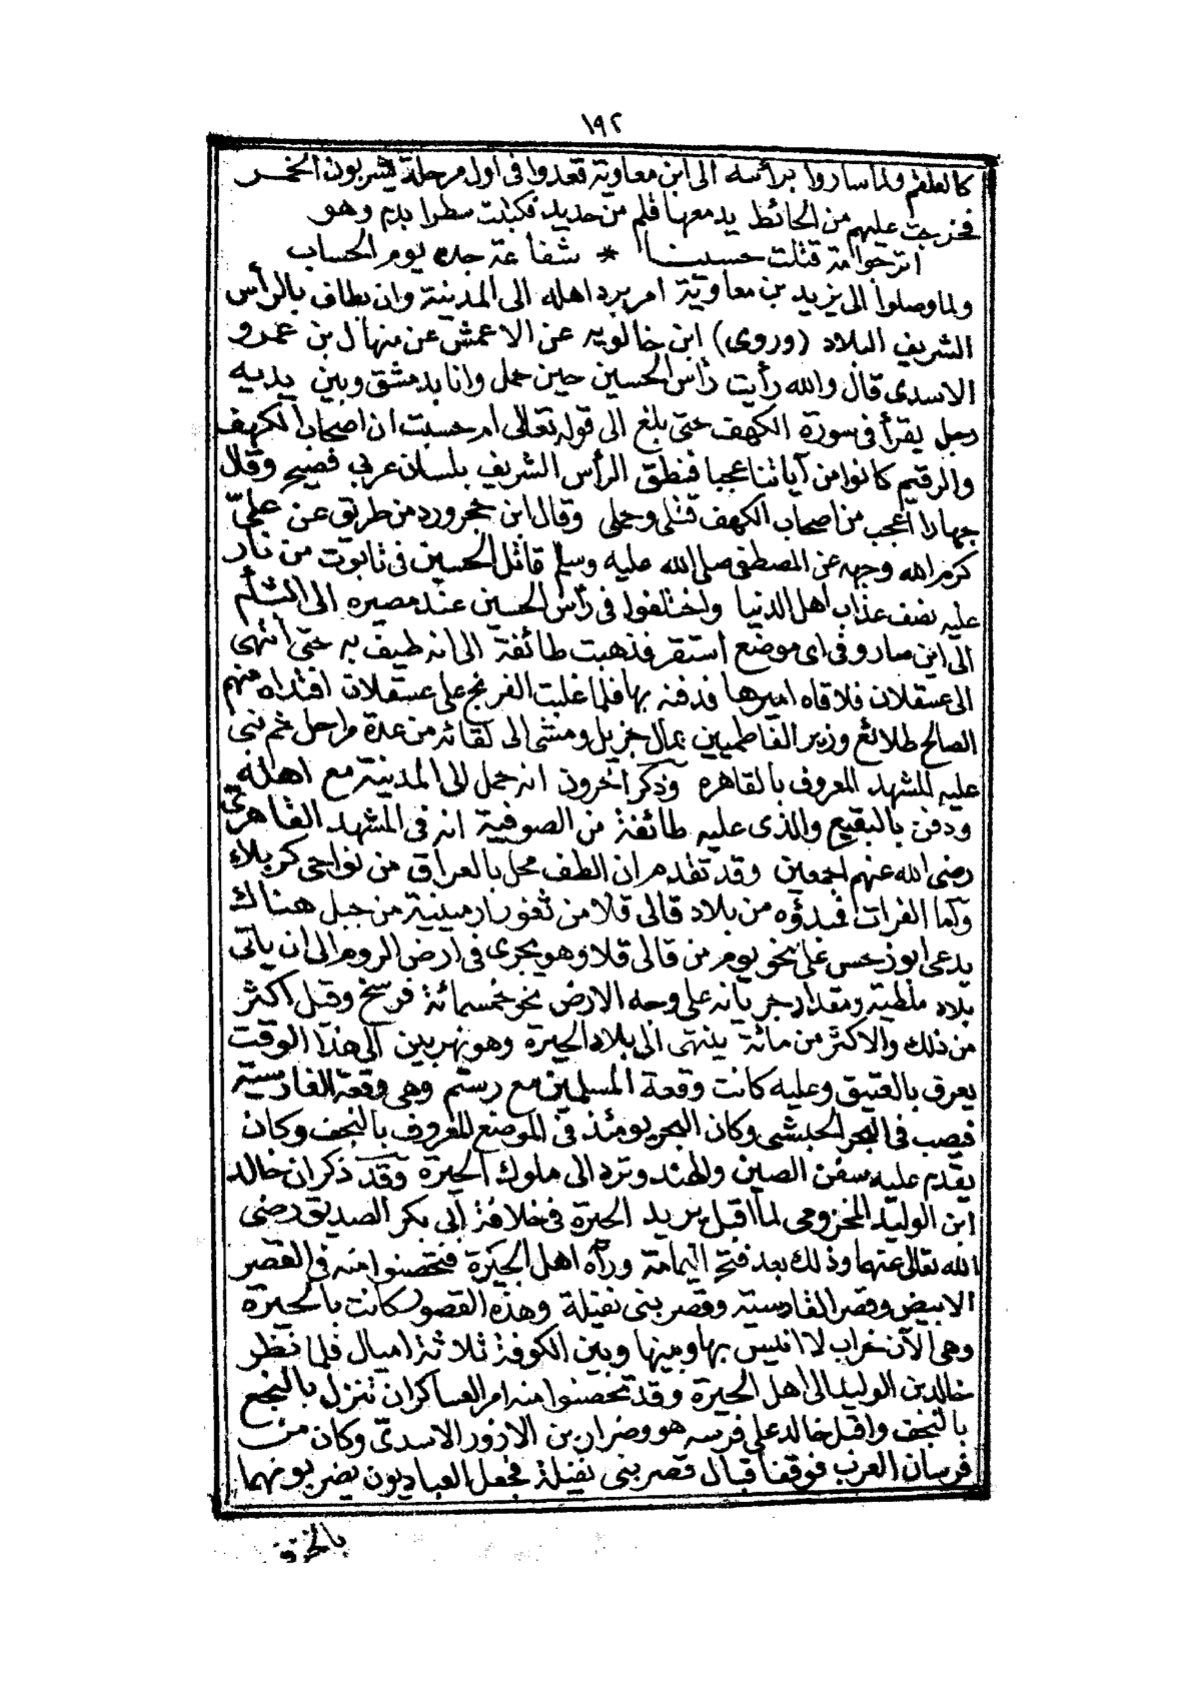 ١٩٢
كالعلقم ولما ساروا برأسه الى ابن معاوية قعدوا فى اول مرحلة يشربون الخمر
فخرجت عليهم من الحائط يد معها قلم من حديد فكتبت سطرا بدم وهو
اترجوا مة قتلت حسينا * شفاعة جده يوم الحساب
ولما وصلوا الى يزيد بن معاوية امر برد اهله الى المدينة وان يطاف بالرأس
الشريف البلاد (وروى) ابن خالويه عن الاعمش عن منهال بن عمرو
الاسدى قال والله رأيت رأس الحسين حين حمل وانا بدمشق وبين يديه
رجل يقرأ فى سورة الكهف حتى بلغ الى قوله تعالى ام حسبت ان اصحاب الكهف
والرقيم كانوا من آياتنا عجبا فنطق الرأس الشريف بلسان عربى فصيح وقال
جهارا اعجب من اصحاب الكهف قتلى وحملى وقال ابن حجر ورد من طريق عن علىّ
كرم الله وجهه عن المصطفى صلى الله عليه وسلم قاتل الحسين فى تابوت من نار
عليه نصف عذاب اهل الدنيا واختلفوا فى رأس الحسين عند مصيره الى الشأم
الى اين صار وفى اى موضع استقر فذهبت طائفة الى انه طيف به حتى انتهى
الى عسقلان فلاقاه اميرها فدفنه بها فلما غلبت الفرنج على عسقلان افتداه منهم
الصالح طلائع وزير الفاطميين بمال جزيل ومشى الى لقائه من عدة مراحل ثم بنى
عليه المشهد المعروف بالقاهره وذكر آخرون انه حمل الى المدينة مع اهله
ودفن بالبقيع والذى عليه طائفة من الصوفية انه فى المشهد القاهرىّ
رضى الله عنهم اجمعين وقد تقدم ان الطف محل بالعراق من نواحى كربلاء
وآما الفرات فمبدؤه من بلاد قالى قلا من ثغور ارمينية من جبل هناك
يدعى ابوزحس على نحو يوم من قالى قلا وهو يجرى فى ارض الروم الى ان يأتى
بلاد ملطية ومقدار جريانه على وجه الارض نحو خمسمائة فرسخ وقيل اكثر
من ذلك والاكثر من مائة ينتهى الى بلاد الحيرة وهو نهر بين الى هذا الوقت
يعرف بالعتيق وعليه كانت وقعة المسلمين مع رستم وهى وقعة القادسية
فيصب فى البحر الحبشى وكان البحر يومئذ فى الموضع المعروف بالنجف وكان
يقدم عليه سفن الصين والهند وترد الى ملوك الحيرة وقد ذكر ان خالد
ابن الوليد المخزومى لما اقبل يريد الحيرة فى خلافة ابى بكر الصديق رضى
الله تعالى عنهما وذلك بعد فتح اليمامة ورآه اهل الحيرة فتحصنوا منه فى القصر
الابيض وقصر القادسية وقصر بنى نفيلة وهذه القصور كانت بالحيرة
وهى الآن خراب لا انيس بها وبينها وبين الكوفة ثلاثة اميال فلما نظر
خالد بن الوليد الى اهل الحيرة وقد تحصنوا منه امر العساكر ان تنزل بالنجع
بالنجف واقبل خالد على فرسه هو وضرار بن الازور الاسدىّ وكان من
فرسان العرب فوقفا قبال قصر بنى نفيلة فجعل العباديون يضربونهما
بالخزف